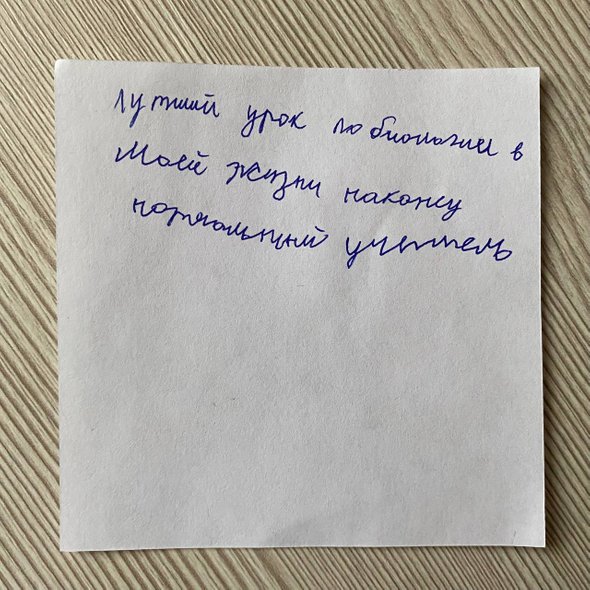 Лутший урок по биологии в
Моей жизни наконец
нормальный учитель